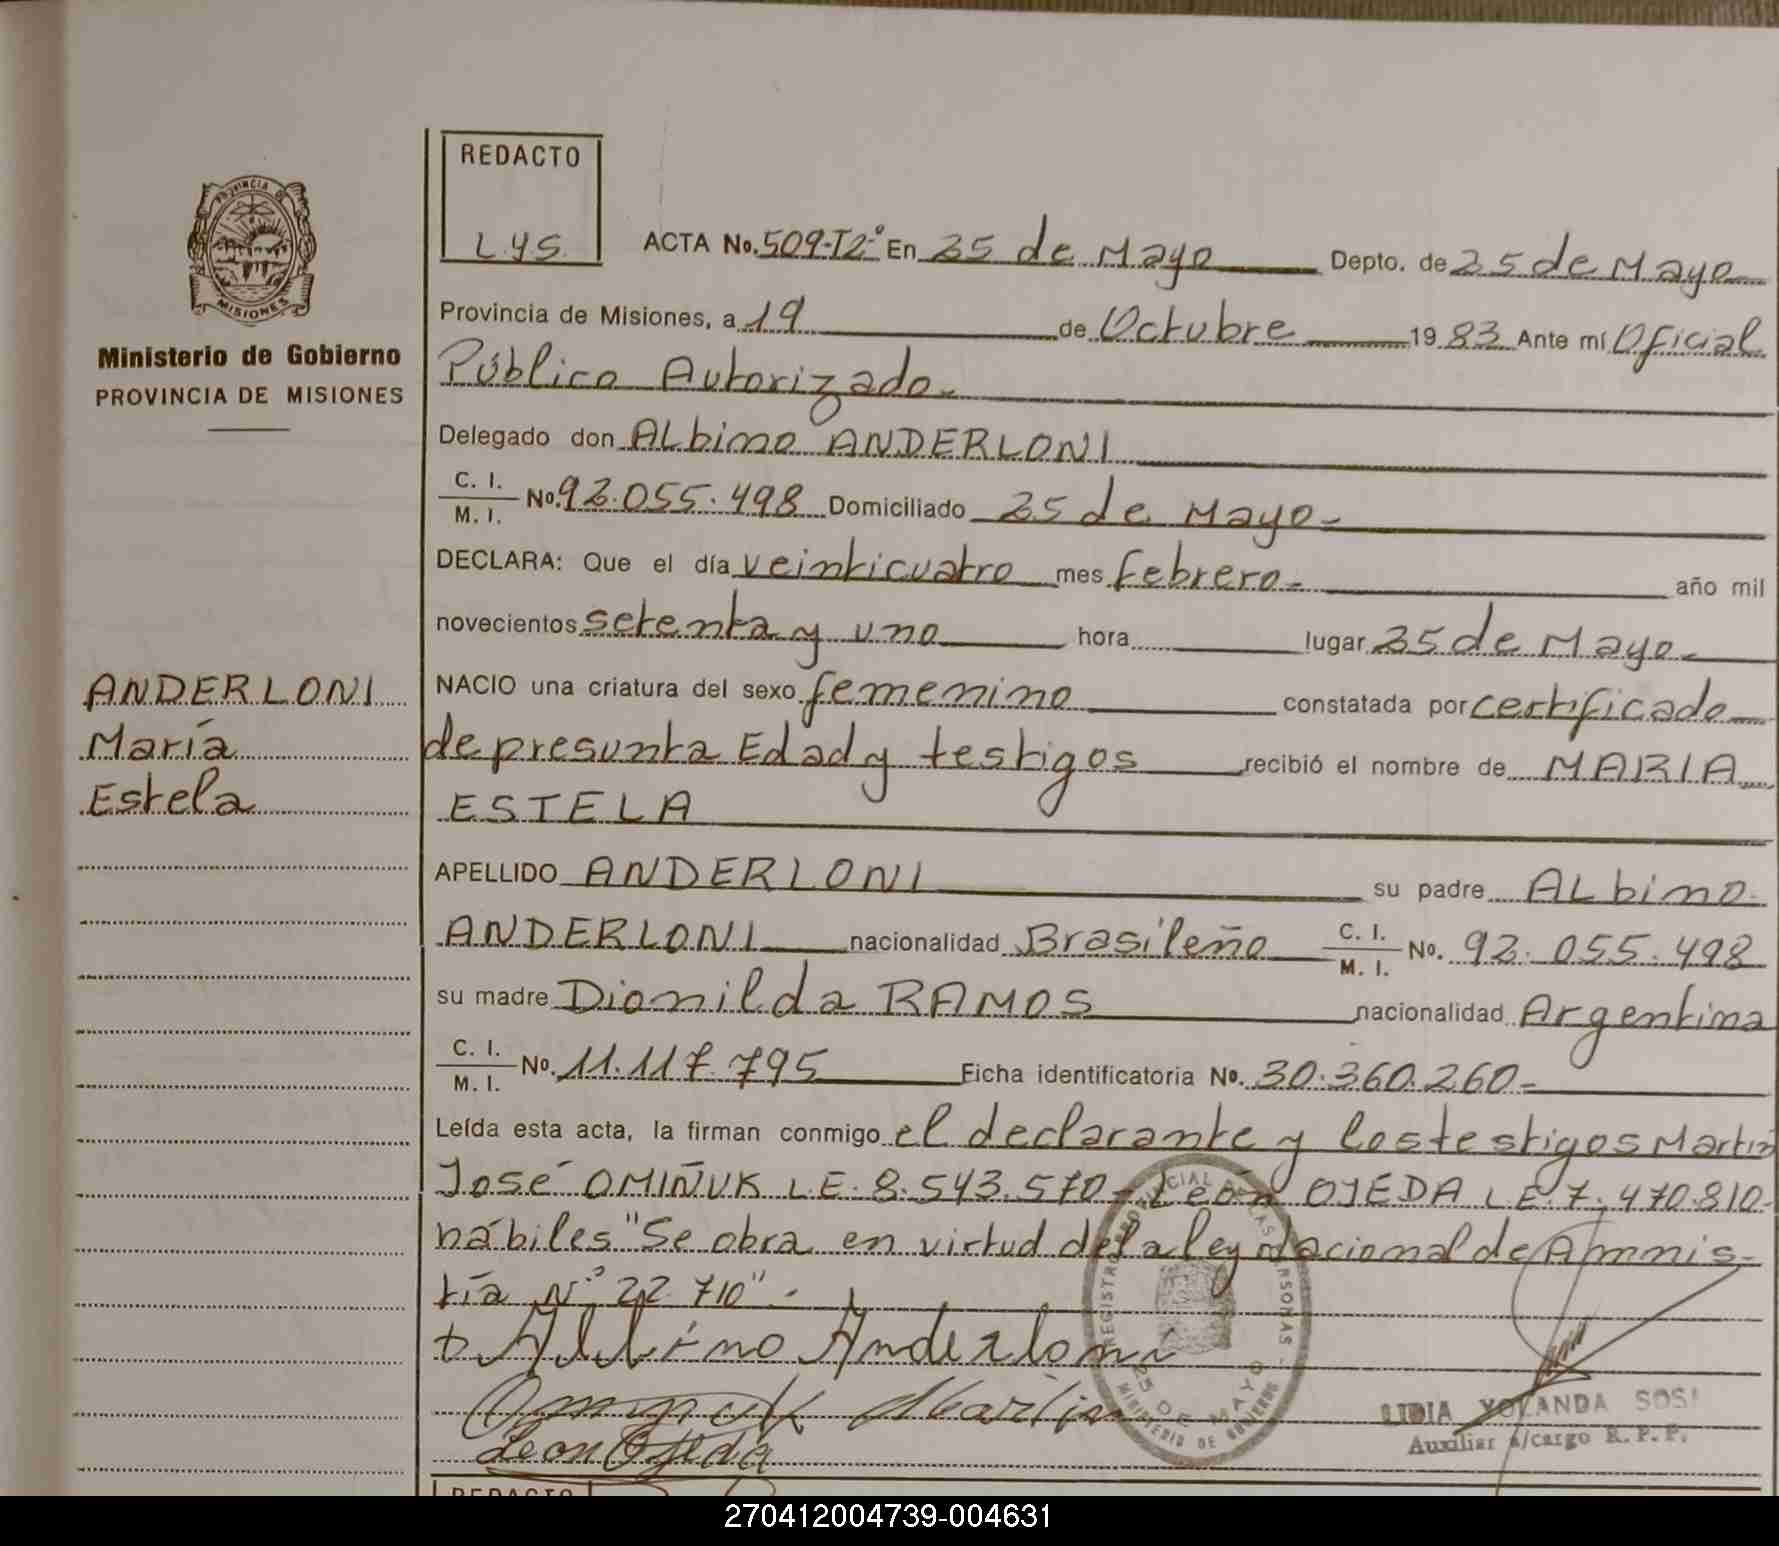 REDACTO
L.y.S.
ACTA No. 509-T2-º En 25 de Mayo Depto. de 25 de Mayo
Provincia de Misiones, a 19 de Octubre 1983 Ante mí Oficial
Público Autorizado.
Delegado don ALbino ANDERLONI
C. I.
M. I.
No. 92.055.498 Domiciliado 25 de Mayo-
DECLARA: Que el día veinticuatro mes febrero- año mil
novecientos setenta y uno hora lugar 25 de Mayo-
NACIO una criatura del sexo femenino constatada por certificado
de presunta Edad y testigos recibió el nombre de MARIA
ESTELA
APELLIDO ANDERLONI su padre ALbino
ANDERLONI nacionalidad Brasileño C. I. M. I. No. 92.055.498
su madre Dionilda RAMOS nacionalidad Argentina
C. I.
M. I.
No. 11.117.795 Ficha identificatoria No. 30.360.260-
Leída esta acta, la firman conmigo el declarante y los testigos Martin
José OMIÑUK L.E. 8.543.570- León OJEDA L.E. 7.470.810-
hábiles "Se obra en virtud de la ley Nacional de Amnis-
tía Nº 22.710".
Albino Anderloni
Leon Ojeda
PROVINCIA DE
MISIONES
Ministerio de Gobierno
PROVINCIA DE MISIONES
ANDERLONI
María
Estela
REGISTRO PROVINCIAL DE LAS PERSONAS
25 DE MAYO
MINISTERIO DE GOBIERNO
LIDIA YOLANDA SOSA
Auxiliar a/cargo R. P. P.
REDACTO
270412004739-004631